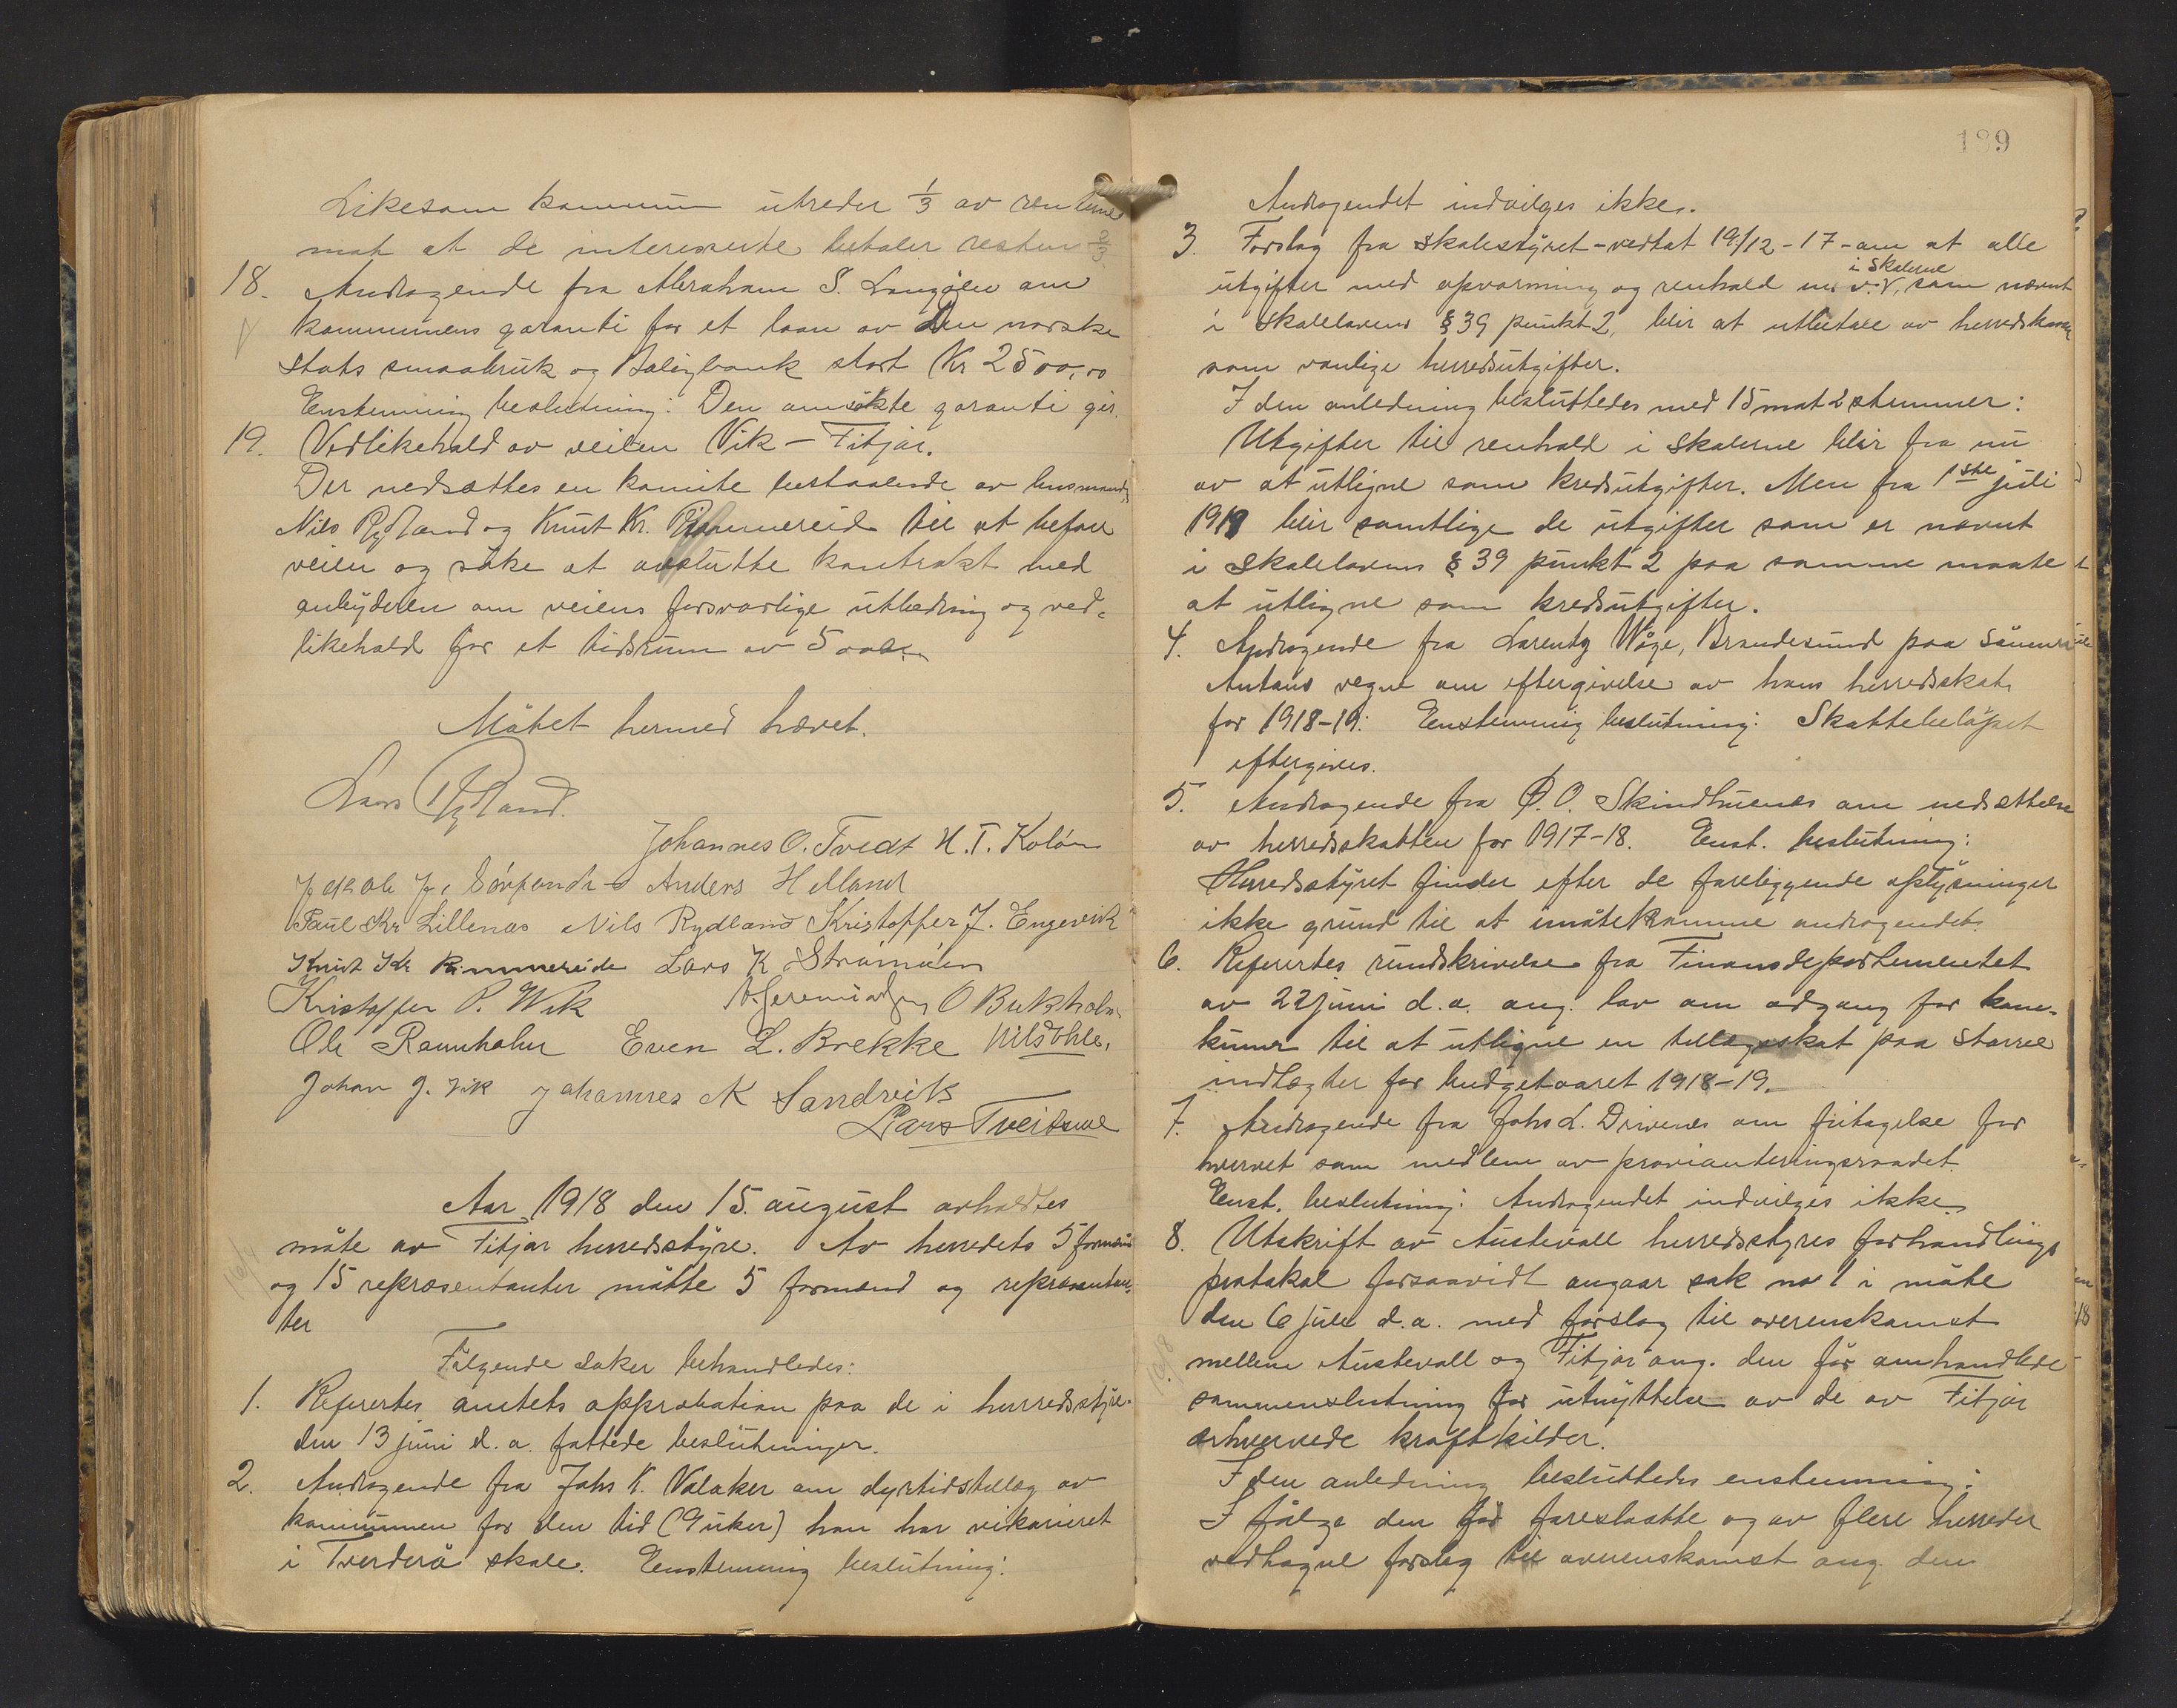 Likesom kommunen utreder 1/3 av renterne
mot at de interesserte betaler resten 2/3
18. Andragende fra Abraham S. Langöen om
kommunens garanti for et laan av den norske
stats smaabruk og Boligbank stort Kr 2500,00
Enstemmig beslutning: Den ansökte garanti gis.
19. Vedlikehold av veilen Vik – Fitjar.
Der nedsættes en komite bestaaende av lensmand
Nils Rydland og Knut Kr. Rimmereid til at befare
veien og söke at avslutte kontrakt med
anbyderen om veiens forsvarlige utbedring og ved-
likehold for et tidsrum av 5 aar.
Mötet hermed hævet.
Lars Rydland.
Johannes O. Tvedt H. T. Kolöen
Jakob J. Sörfonde Anders Helland
Paul Kr Lillenes Nils Rydland Kristoffer J. Engevik
Knut Kr Rimmereide Lars K Strömöen
Kristoffer P. Wik O Bukholm
Ole Raunholm Even L. Brekke Nils Ohle.
Johan J. Vik Johannes K Sandvik
Lars Tveitene
Aar 1918 den 15. august avholdtes
möte av Fitjar herredsstyre. Av herredets 5 formænd
og 15 repræsentanter mötte 5 formænd og repræsentan-
ter
Fölgende saker behandledes:
1. Refereertes amtets approbation paa de i herredsstyre-
den 13 juni d. a. fattede beslutninger.
2. Andragende fra Johs K. Valaker om dyrtidstillæg av
kommunen for den tid (9 uker) han har vikarieret
i Tverderö skole. Enstemmig beslutning:
189
Andragendet indvilges ikke.
3. Forslag fra skolestyret – vedtat 19/12 – 17 – om at alle
i skolerne
utgifter med opvarming og renhold m. v., som nævnt
i skolelovens § 39 punkt 2, blir at utbetale av herredskassen
som vanlige herredsutgifter.
I den anledning besluttedes med 15 mot 2 stemmer:
Utgifter til renhold i skolerne blir fra nu
av at utligne som kredsutgifter. Men fra 1ste juli
1919 blir samtlige de utgifter som er nævnt
i skolelovens § 39 punkt 2 paa samme maate
at utligne som kredsutgifter.
4. Andragende fra Larentz Wåge, Brandesund paa sönnen
Antons vegne om eftergivelse av hans herredsskat
for 1918–19: Enstemmig beslutning: Skattebelöpet
eftergives.
5. Andragende fra O. O. Skindhuenes om nedsættelse
av herredsskatten for 1917–18. Enst. beslutning:
Herredsstyret finder efter de foreliggende oplysninger
ikke grund til at imötekomme andragendet.
6. Refereertes rundskrivelse fra Finansdepartementet
av 22 juni d. a. ang. lov om adgang for kom-
muner til at utligne en tillægsskat paa större
indtægter for budgetaaret 1918–19.
7. Andragende fra Johs L. Drivenes om fritagelse for
hvervet som medlem av provianteringsraadet.
Enst. beslutning: Andragendet indvilges ikke.
8. Utskrift av Austevoll herredsstyres forhandlings
protokol forsaavidt angaar sak no 1 i möte
den 6 juli d. a. med forslag til overenskomst
mellem Austevoll og Fitjar ang. den för omhandlede
sammenslutning for utnyttelse av de av Fitjar
erhvervede kraftkilder.
I den anledning besluttedes enstemmig:
I fölge den för foreslaatte og av flere herreder
vedtagne forslag til overenskomst ang. den